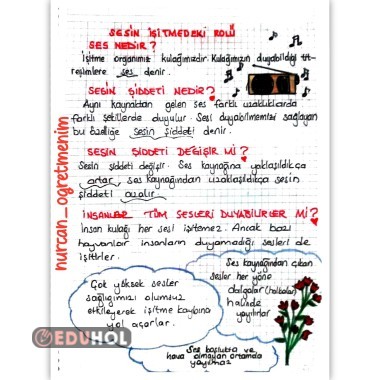 SESİN İŞİTMEDEKİ ROLÜ
SES NEDİR?
İşitme organımız kulağımızdır. Kulağımızın duyabildiği tit-
reşimlere ses denir.
SESİN ŞİDDETİ NEDİR?
Aynı kaynaktan gelen ses farklı uzaklıklarda
farklı şekillerde duyulur. Sesi duyabilmemizi sağlayan
bu özelliğe sesin şiddeti denir.
SESİN ŞİDDETİ DEĞİŞİR Mİ?
Sesin şiddeti değişir. Ses kaynağına yaklaşıldıkça
artar, ses kaynağından uzaklaşıldıkça sesin
şiddeti azalır.
İNSANLAR TÜM SESLERİ DUYABİLİRLER Mİ?
İnsan kulağı her sesi işitemez. Ancak bazı
hayvanlar insanların duyamadığı sesleri de
işitirler.
Ses kaynağından çıkan
sesler her yöne
dalgalar (halkalar)
halinde
yayılırlar
Çok yüksek sesler
sağlığımızı olumsuz
etkileyerek işitme kaybına
yol açarlar.
Ses boşlukta ve
hava olmayan ortamda
yayılmaz
nurcan_ogretmenim
EDUHOL